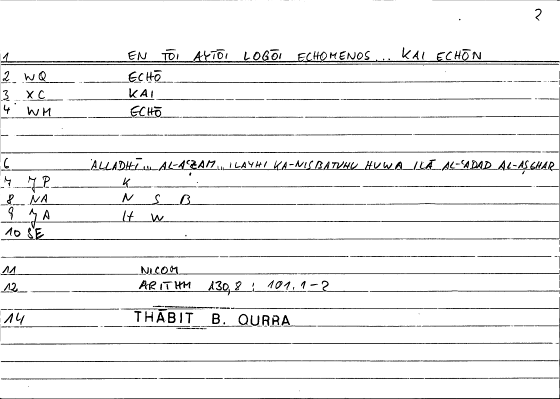 2
1 EN TŌI AYTŌI LOGŌI ECHOMENOS... KAI ECHŌN
2 WQ ECHŌ
3 XC KAI
4 WM ECHŌ
6 ALLADHĪ... AL-AʿẒAM... ILAYHI KA-NISBATUHU HUWA ILĀ AL-ʿADAD AL-AṢGHAR
7 JP K
8 NA N S B
9 JA H W
10 SE
11 NICOM
12 ARITHM 130,8 : 101,1-2
14 THĀBIT B. QURRA